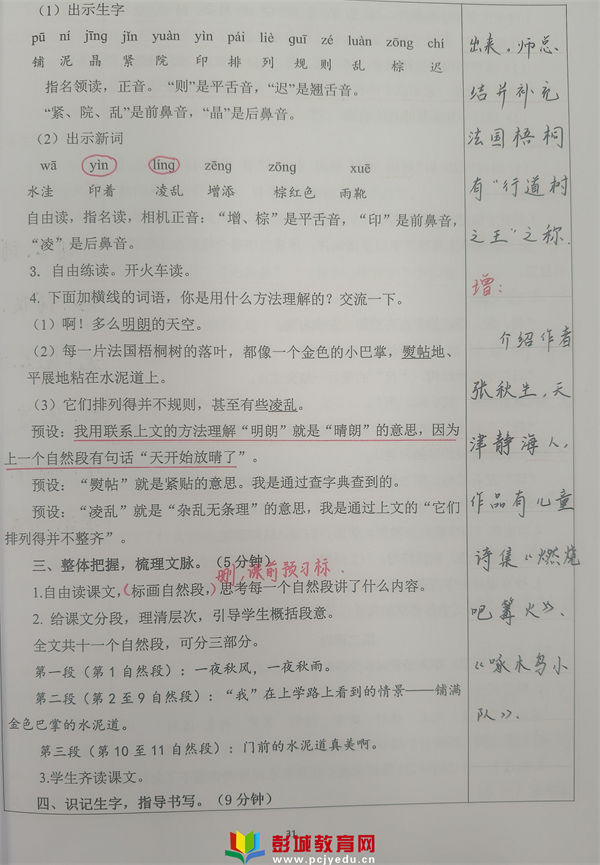 （1）出示生字
pū ní jīng jǐn yuàn yìn pái liè guī zé luàn zōng chí
铺 泥 晶 紧 院 印 排 列 规 则 乱 棕 迟
指名领读，正音。“则”是平舌音，“迟”是翘舌音。
“紧、院、乱”是前鼻音，“晶”是后鼻音。
（2）出示新词
wā yìn líng zēng zōng xuē
水洼 印着 凌乱 增添 棕红色 雨靴
自由读，指名读，相机正音：“增、棕”是平舌音，“印”是前鼻音，
“凌”是后鼻音。
3. 自由练读。开火车读。
4. 下面加横线的词语，你是用什么方法理解的？交流一下。
（1）啊！多么明朗的天空。
（2）每一片法国梧桐树的落叶，都像一个金色的小巴掌，熨帖地、
平展地粘在水泥道上。
（3）它们排列得并不规则，甚至有些凌乱。
预设：我用联系上文的方法理解“明朗”就是“晴朗”的意思，因为
上一个自然段有句话“天开始放晴了”。
预设：“熨帖”就是紧贴的意思。我是通过查字典查到的。
预设：“凌乱”就是“杂乱无条理”的意思，我是通过上文的“它们
排列得并不整齐”。
三、整体把握，梳理文脉。（5分钟）
删，课前预习标.
1.自由读课文，（标画自然段，）思考每一个自然段讲了什么内容。
2. 给课文分段，理清层次，引导学生概括段意。
全文共十一个自然段，可分三部分。
第一段（第1自然段）：一夜秋风，一夜秋雨。
第二段（第2至9自然段）：“我”在上学路上看到的情景——铺满
金色巴掌的水泥道。
第三段（第10至11自然段）：门前的水泥道真美啊。
3.学生齐读课文。
四、识记生字，指导书写。（9分钟）
出来，师总
结并补充
法国梧桐
有“行道树
之王”之称.
增：
介绍作者
张秋生，天
津静海人，
作品有儿童
诗集《燃烧
吧篝火》、
《啄木鸟小
队》.
31
彭城教育网
www.pcjyedu.cn